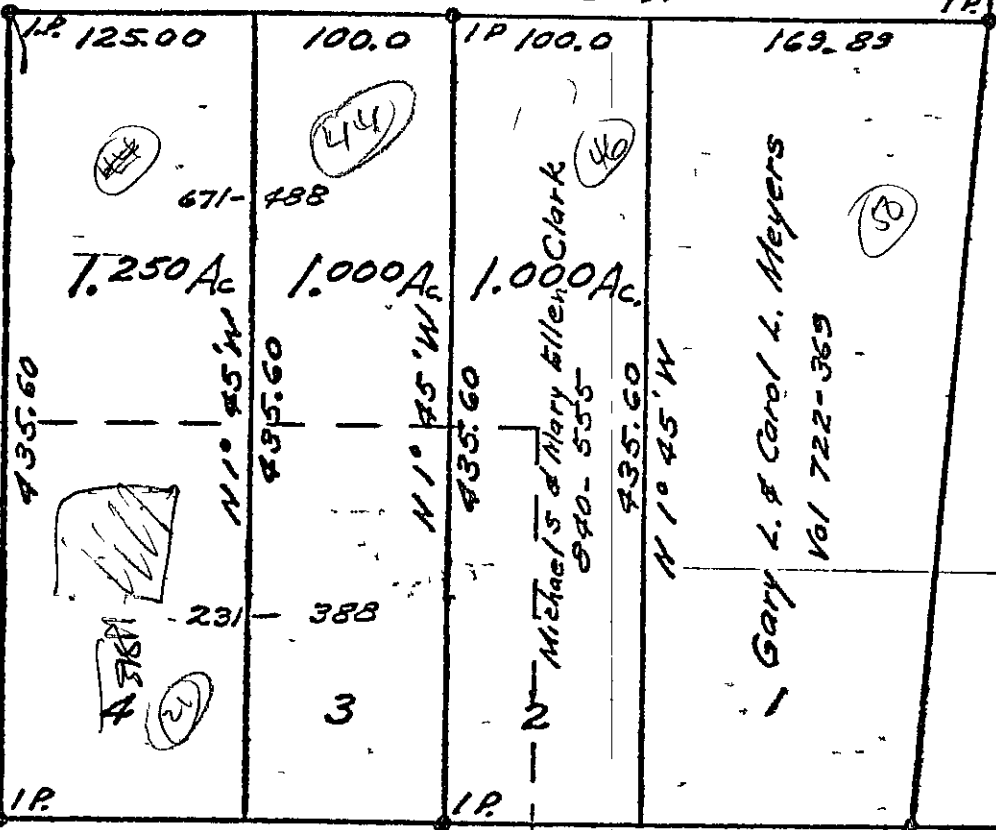 I.P. 125.00 100.0 I P 100.0 169.89 I P.
44 46 50
671- 488
1.250 Ac 1.000 Ac 1.000 Ac.
435.60 N 1° 45' W 435.60 N 1° 45' W 435.60 435.60 N 1° 45' W
Michael S & Mary Ellen Clark
840-555
Gary L. & Carol L. Meyers
Vol 722-369
231 - 388
4 21 3 2 1
I P. I P.